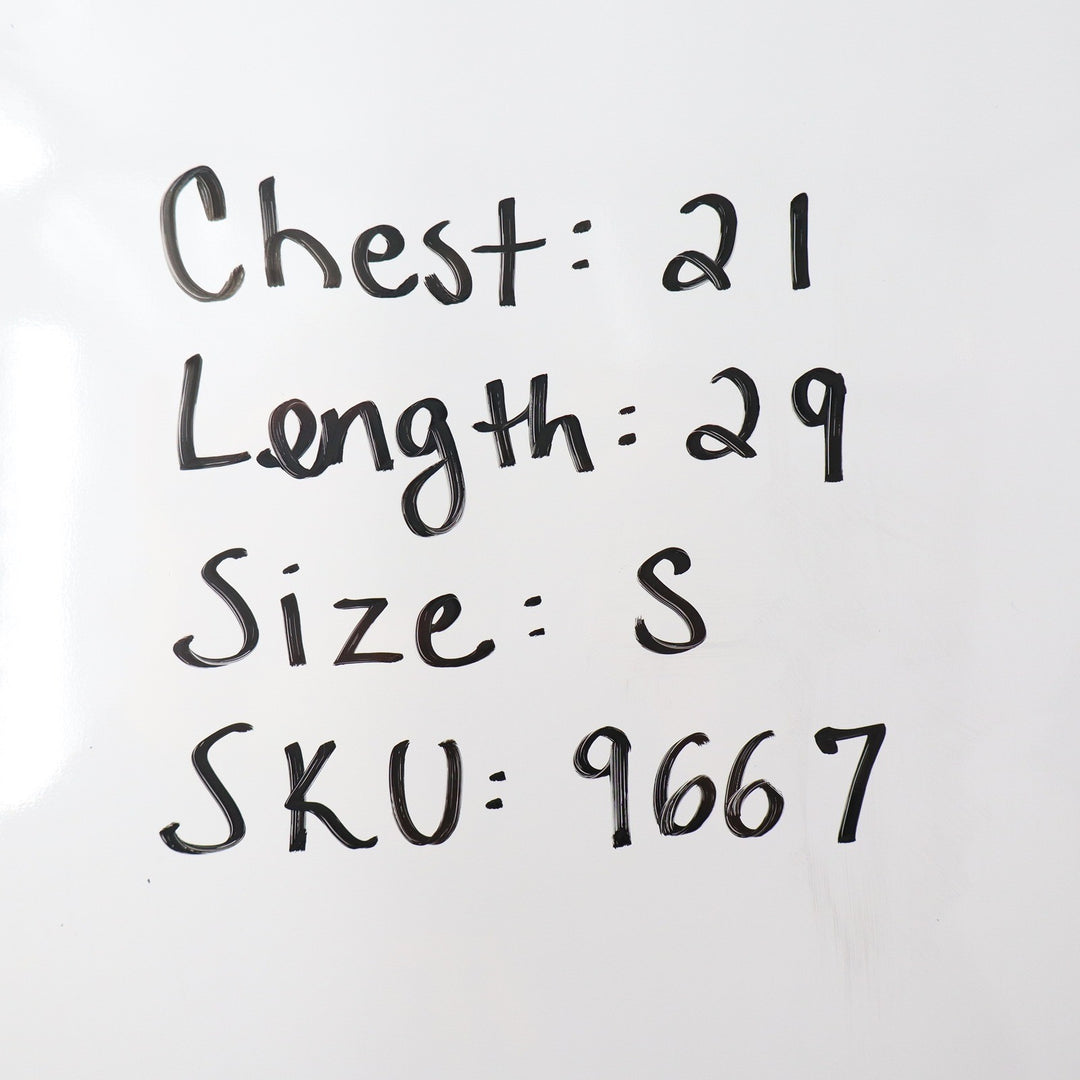 Chest: 21
Length: 29
Size: S
SKU: 9667